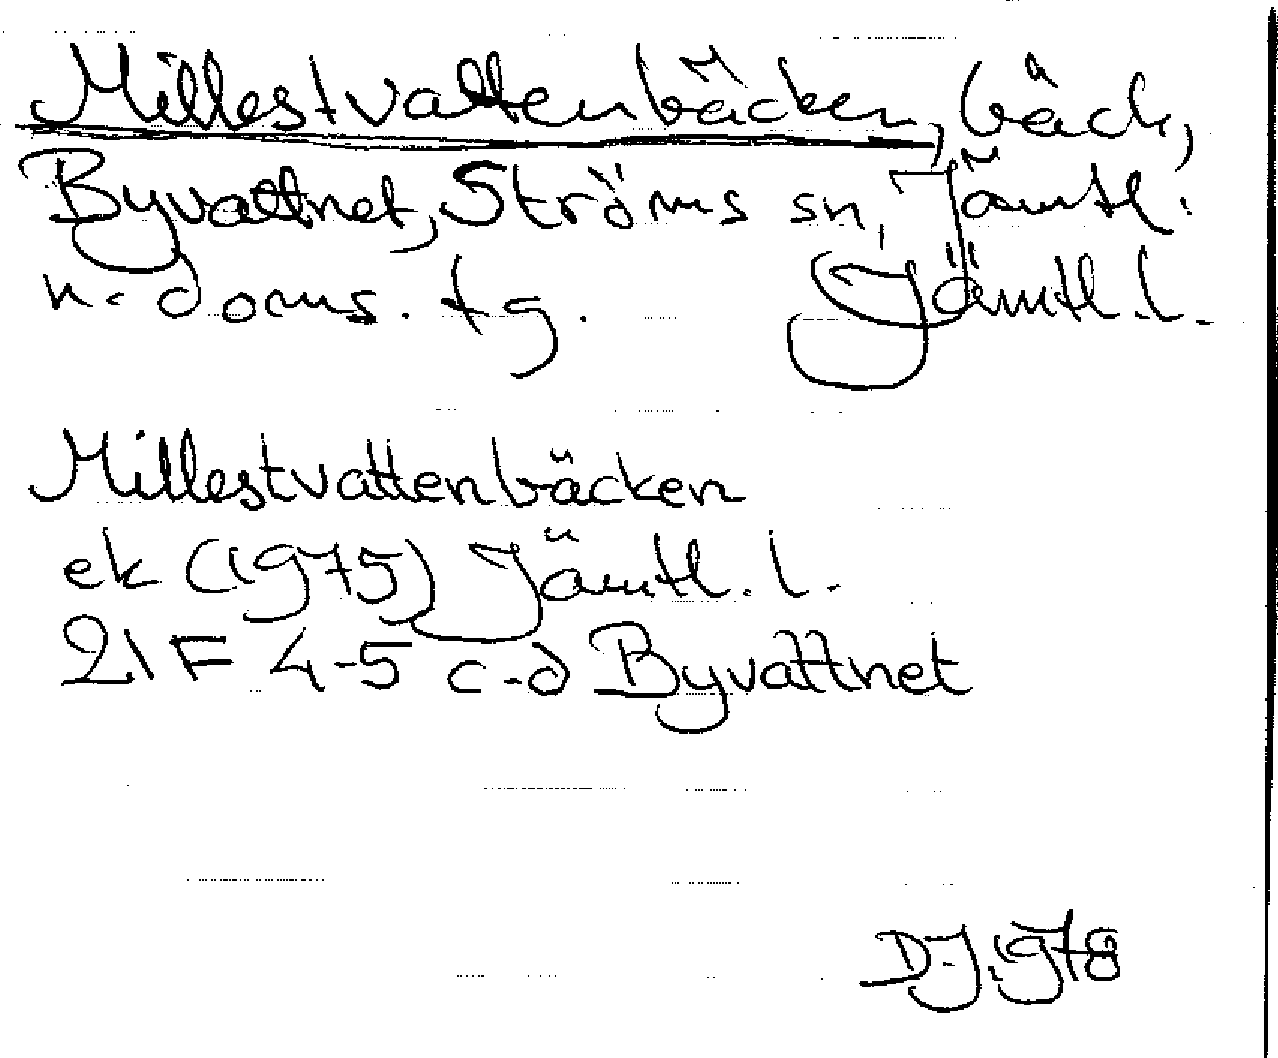 Millestvattenbäcken, bäck,
Byvattnet, Ströms sn, Jämtl:
n. doms. tg. Jämtl. l.
Millestvattenbäcken
ek (1975) Jämtl. l.
21F 4-5 c-d Byvattnet
DJ 1978